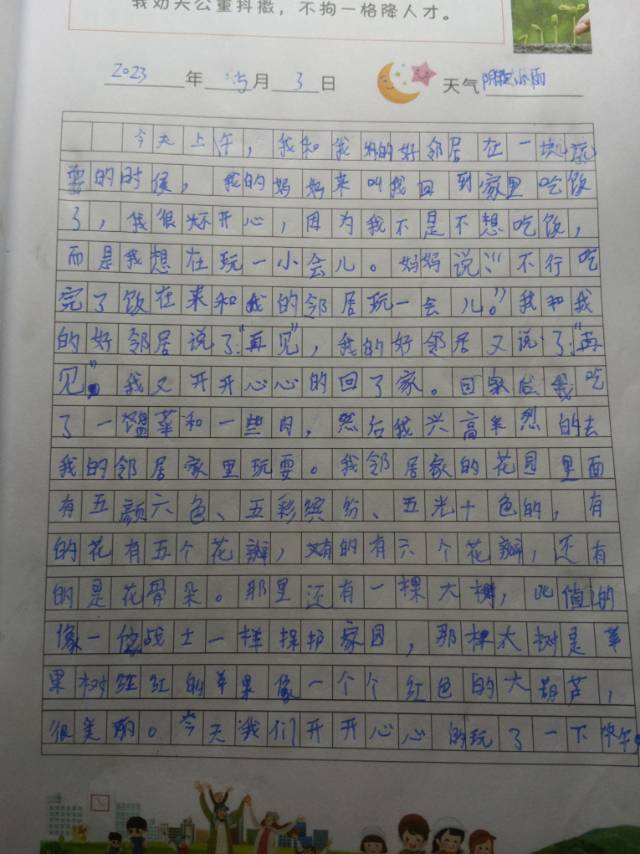 我劝天公重抖擞，不拘一格降人才。
2023年 月3日 天气 小雨
今天上午，我和我的好邻居在一块玩
耍的时候，我的妈妈来叫我回到家里吃饭
了，我很不开心，因为我不是不想吃饭，
而是我想在玩一小会儿。妈妈说：“不行吃
完了饭在来和我的邻居玩一会儿。”我和我
的好邻居说了“再见”，我的好邻居又说了“再
见”。我又开开心心的回了家。回家后我吃
了一 和一些肉，然后我兴高采烈的去
我的邻居家里玩耍。我邻居家的花园里面
有五颜六色、五彩缤纷、五光十色的，有
的花有五个花瓣，有的有六个花瓣，还有
的是花骨朵。那里还有一棵大树， 的
像一位战士一样保护家园，那棵大树是苹
果树红红的苹果像一个个红色的大葫芦，
很美丽。今天我们开开心心的玩了一下午